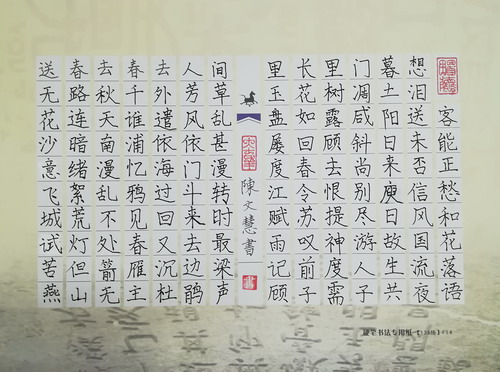 送春去春去人间里长里门暮想
无路秋千外芳草玉花树凋土泪
花连天谁遣风乱盘如露咸阳送客
沙暗南浦依依甚屡回顾斜日未能
意绪漫忆海门漫度春去尚来否正
飞絮乱鸦过斗转江令恨别庾信愁
城荒不见回来时赋苏提尽日风和
试灯处春又去最雨叹神游故国花
苦但箭雁沉边梁记前度人生流落
燕山无主杜鹃声顾子需子共夜语
陳文慧書
硬笔书法专用纸